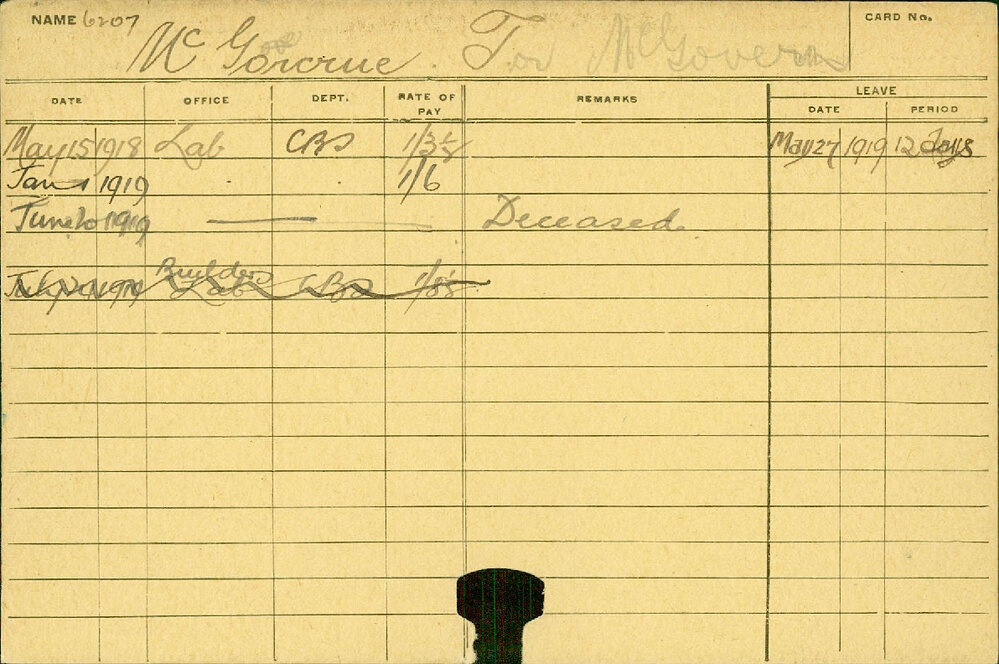 NAME 6207 CARD No.
Mc Gorcrue. T. or McGovern
LEAVE
DATE OFFICE DEPT. RATE OF PAY REMARKS DATE PERIOD
May 15 1918 Lab CBS 1/3½ May 27 1919 12 days
Jan 1 1919 1/6
June 20 1919 Deceased.
1919 Builders Lab CBS